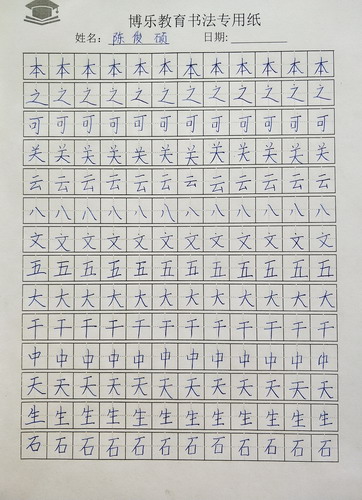 博乐教育书法专用纸
姓名: 陈俊硕 日期:
本本本本本本本本本本本本
之之之之之之之之之之之之
可可可可可可可可可可可可
关关关关关关关关关关关关
云云云云云云云云云云云云
八八八八八八八八八八八八
文文文文文文文文文文文文
五五五五五五五五五五五五
大大大大大大大大大大大大
干干干干干干干干干干干干
中中中中中中中中中中中中
天天天天天天天天天天天天
生生生生生生生生生生生生
石石石石石石石石石石石石